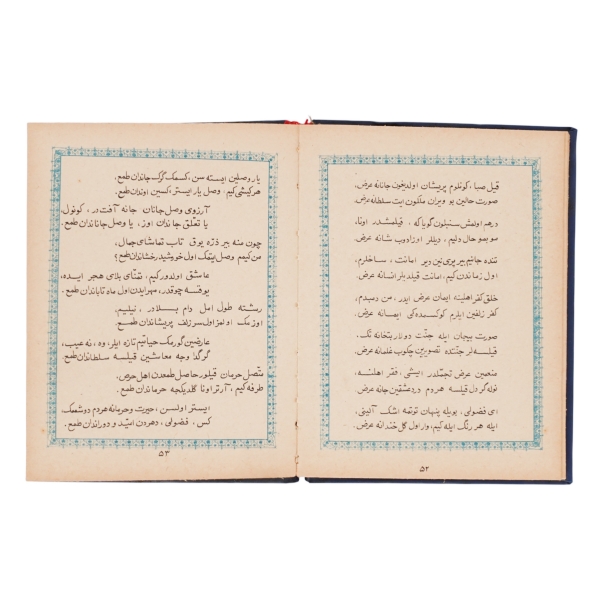 قیل صبا، کونلوم پریشان اولدیغین جانانه عرض
صورت حالین بو ویران ملکون ایت سلطانه عرض.
درهم اولمش سنبلون گویا که، قیلمشدر اونا،
موبمو حال دلیم، دیللر اوزادوب شانه عرض
تنده جانیم بیر پری نین دیر امانت، ساخلارم
اول زماندن کیم، امانت قیلدیلر انسانه عرض.
خلق کفر اهلینه ایمان عرض ایدر،
کفر زلفین ایلرم کوکسمده کی ایمانه عرض.
صورت بیجان ایله جنّت دونار بتخانه تک،
قیلسه لر جنتده تصویرین چکوب غلمانه عرض.
منعمین عرض تجمّلدر ایشی، فقر اهلنه
نوله گر دل قیلسه هردم درد عشقین جانه عرض.
ای فضولی، بویله پنهان توتمه اشک آلینی،
ایله هر رنگ ایله کیم، وار اول گل خندانه عرض.
۵۲
یار وصلین ایسته سن، کسمک گرک جاندان طمع.
هر کیشی کیم، وصل یار ایستر، کسین اوندان طمع.
آرزوی وصل جانان جانه آفت در، کونول،
یا تعلّق جاندان اوز، یا وصل جاناندان طمع.
چون منه بیر ذرّه یوق تاب تماشای جمال،
من کیمم کیم وصل ایتمک اول خورشید رخشاندان طمع؟
عاشق اولدور کیم، تمنّای بلای هجر ایده،
یوقسه چوقدر، مهر ایدن اول ماه تاباندان طمع.
رشته طول امل دام بلادر، نیلییم،
اوزمک اولمز اول سر زلف پریشاندان طمع.
عارضین گورمک حیاتیم تازه ایلر، وه، نه عیب،
گر گدا وجه معاشین قیلسه سلطاندان طمع.
متّصل حرمان قیلور حاصل طمعدن اهل حرص،
طرفه کیم، آرتر اونا گلدیکجه حرماندان طمع.
ایستر اولسن، حیرت و حرمانه هردم دوشمک،
کس، فضولی، دهردن امّید و دوراندان طمع.
۵۳